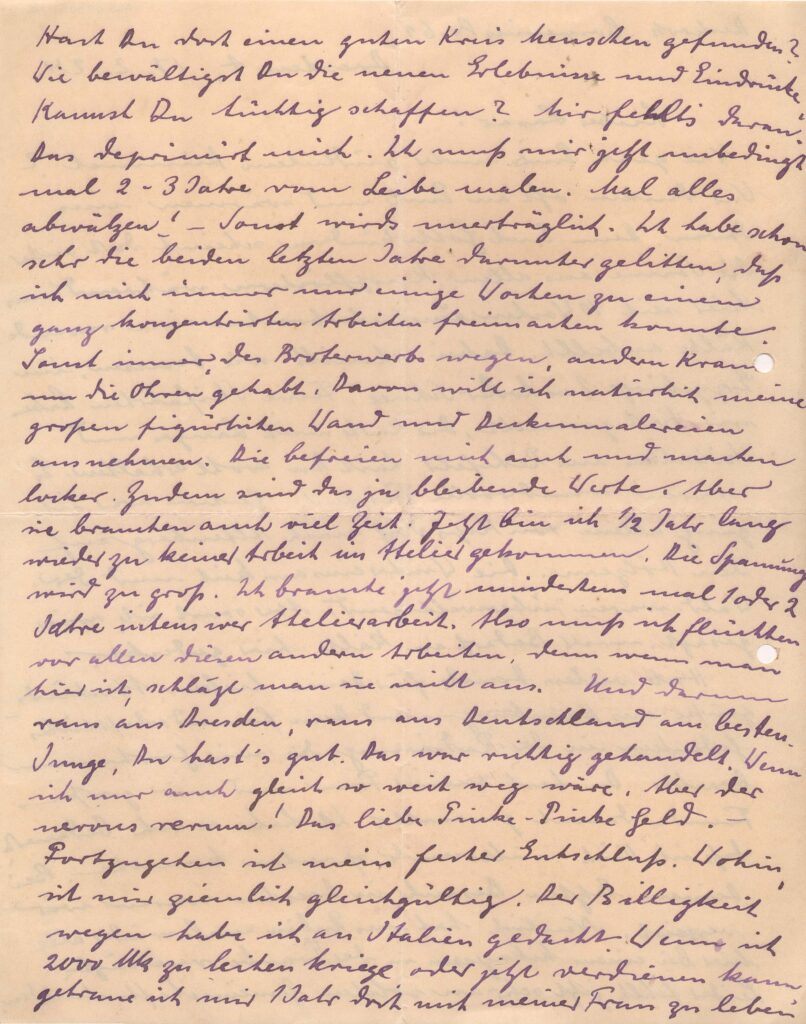 Hast Du dort einen guten Kreis Menschen gefunden?
Wie bewältigst Du die neuen Erlebnisse und Eindrücke,
Kannst Du tüchtig schaffen? Mir fehlts daran.
Das deprimirt mich. Ich muß mir jetzt unbedingt
mal 2-3 Jahre vom Leibe malen. Mal alles
abwälzen! – Sonst wirds unerträglich. Ich habe schon
sehr die beiden letzten Jahre darunter gelitten, daß
ich mich immer nur einige Wochen zu einem
ganz konzentrirten Arbeiten freimachen konnte.
Sonst immer, des Broterwerbs wegen, andern Kram
um die Ohren gehabt. Davon will ich natürlich meine
großen figürlichen Wand und Deckenmalereien
ausnehmen. Die befreien mich auch und machen
locker. Zudem sind das ja bleibende Werte. Aber
sie brauchen auch viel Zeit. Jetzt bin ich 1/2 Jahr lang
wieder zu keiner Arbeit im Atelier gekommen. Die Spannung
wird zu groß. Ich brauche jetzt mindestens mal 1 oder 2
Jahre intensiver Atelierarbeit. Also muß ich flüchten
vor allen diesen andern Arbeiten, denn wenn man
hier ist, schlägt man sie nicht aus. Und darum
raus aus Dresden, raus aus Deutschland am besten.
Junge, Du hast's gut. Das war richtig gehandelt. Wenn
ich nur auch gleich so weit weg wäre. Aber der
nervus rerum! Das liebe Pinke-Pinke Geld. –
Fortzugehen ist mein fester Entschluß. Wohin,
ist mir ziemlich gleichgültig. Der Billigkeit
wegen habe ich an Italien gedacht. Wenn ich
2000 Mk zu leihen kriege oder jetzt verdienen kann
getraue ich mir 1 Jahr dort mit meiner Frau zu leben